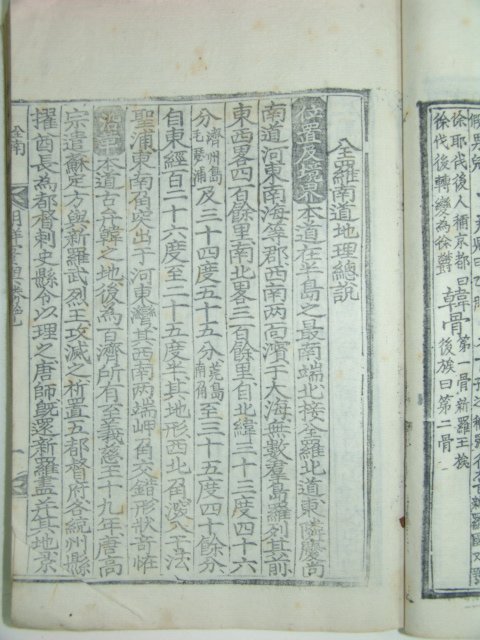 假男兒
徐耶伐後人稱京都曰
徐伐後轉變爲徐鬱
韓骨第一骨新羅王族
後族曰第二骨
全羅南道地理總說
位置及境界本道在半島之最南端北接全羅北道東隣慶尙
南道河東南海等郡西南两面濱于大海無數羣島羅列其前
東西畧四百餘里南北畧三百餘里自北緯三十三度四十六
分濟州島毛瑟浦及三十四度五十五分荒島南角至三十五度四十餘分
自東經百二十六度至二十五度半其地形西北角深入于法
聖浦東南角突出于河東灣其西南两端岬角交錯形狀奇恠
沿革本道古弁韓之地後爲百濟所有至義慈王十九年唐高
宗遣蘇定方與新羅武烈王攻滅之析置五都督府各統州縣
擢酋長爲都督刺史縣令以理之唐師旣還新羅盡在其地景
全南